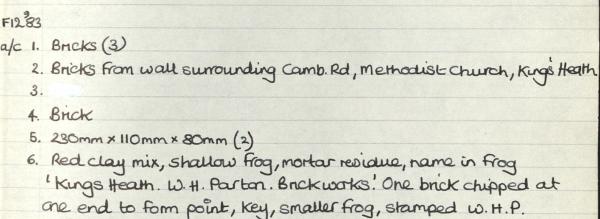 F12'83
9
a/c 1. Bricks (3)
2. Bricks from wall surrounding Camb. Rd, Methodist Church, King's Heath
3.
4. Brick
5. 230mm x 110mm x 80mm (2)
6. Red clay mix, shallow frog, mortar residue, name in frog
'Kings Heath. W. H. Parton. Brickworks.' One brick chipped at
one end to form point, Key, smaller frog, stamped W. H. P.